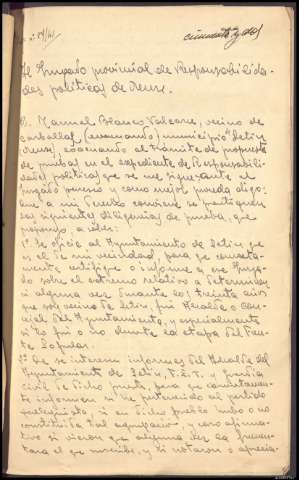 nº 171/41
cincuenta y dos
Al Juzgado provincial de Responsabilida-
des políticas de Orense.
D. Manuel Blanco Valcarce, vecino de
Carballal (              ) municipio
Orense), evacuando el trámite de propuesta
de pruebas en el expediente de Responsabili-
dades políticas que se me sigue ante el
Juzgado                y como mejor proceda digo:
Que a mi derecho conviene se practiquen
las siguientes diligencias de prueba, que
propongo, a saber:
1ª Se oficie al Ayuntamiento de
es el de mi vecindad, para que concreta-
mente certifique o informe a ese Juzga-
do sobre el extremo relativo a determinar
si alguna vez durante los treinta años
que soy vecino de          fui Alcalde o con-
cejal del Ayuntamiento, y especialmente
si lo fui o no durante la etapa del Fren-
te Popular.
2ª De se interesen informes del Alcalde del
Ayuntamiento de           F.E.T. y guardia
civil de dicho punto, para que concretamente
informen si he pertenecido al partido
          si en dicho pueblo hubo o no
constituida tal agrupación, y caso afirma-
tivo si vieron que alguna vez la frecuen-
tara el que suscribe, y si notaron o aprecia-